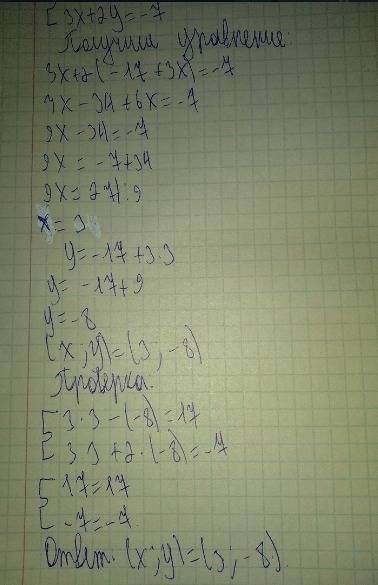 [3x+2y=-7
Получим уравнение:
3x+2(-17+3x)=-7
3x-34+6x=-7
9x-34=-7
9x=-7+34
9x=27|:9
x=3
y=-17+3·3
y=-17+9
y=-8
(x;y)=(3;-8)
Проверка:
[3·3-(-8)=17
[3·3+2·(-8)=-7
[17=17
[-7=-7
Ответ: (x;y)=(3;-8)